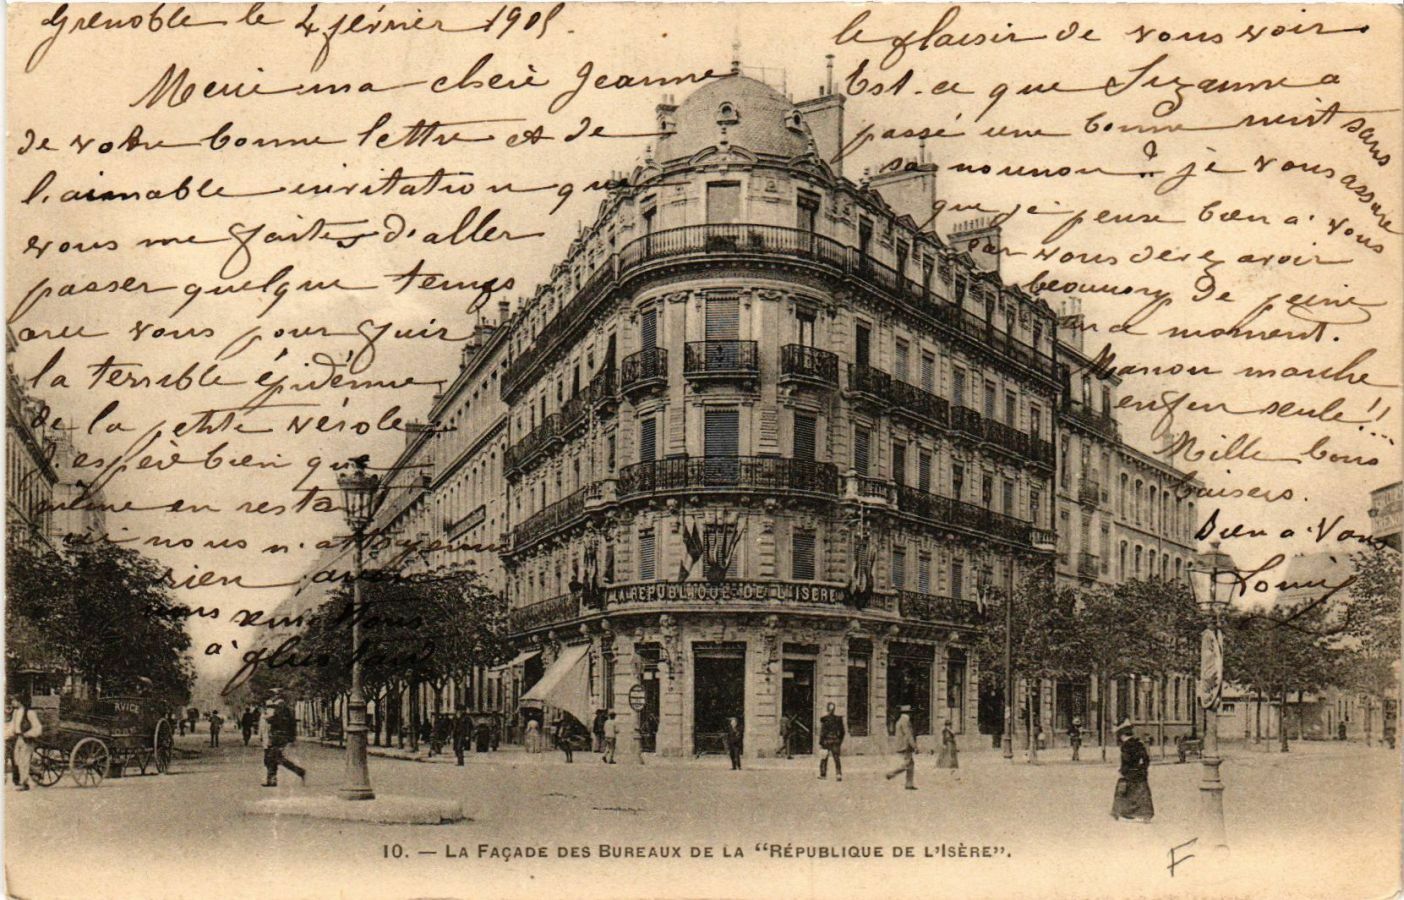 Grenoble le 4 février 1905.
Merci ma chère Jeanne
de votre bonne lettre et de
l'aimable invitation que
vous me faites d'aller
passer quelque temps
avec vous pour fuir
la terrible épidémie
de la petite vérole
J'espère bien que
même en restant
ici nous n'attraperons
rien, avec
nous remettons
à plus tard
le plaisir de vous voir.
Est-ce que Suzanne a
passé une bonne nuit sans
sa nounou? je vous assure
que je pense bien à vous
car vous devez avoir
beaucoup de peine
en ce moment.
Manon marche
enfin seule!!...
Mille bons
baisers.
Bien à Vous
Louis
LA REPUBLIQUE DE L'ISERE
RVICE
10. — LA FAÇADE DES BUREAUX DE LA "RÉPUBLIQUE DE L'ISÈRE".
F